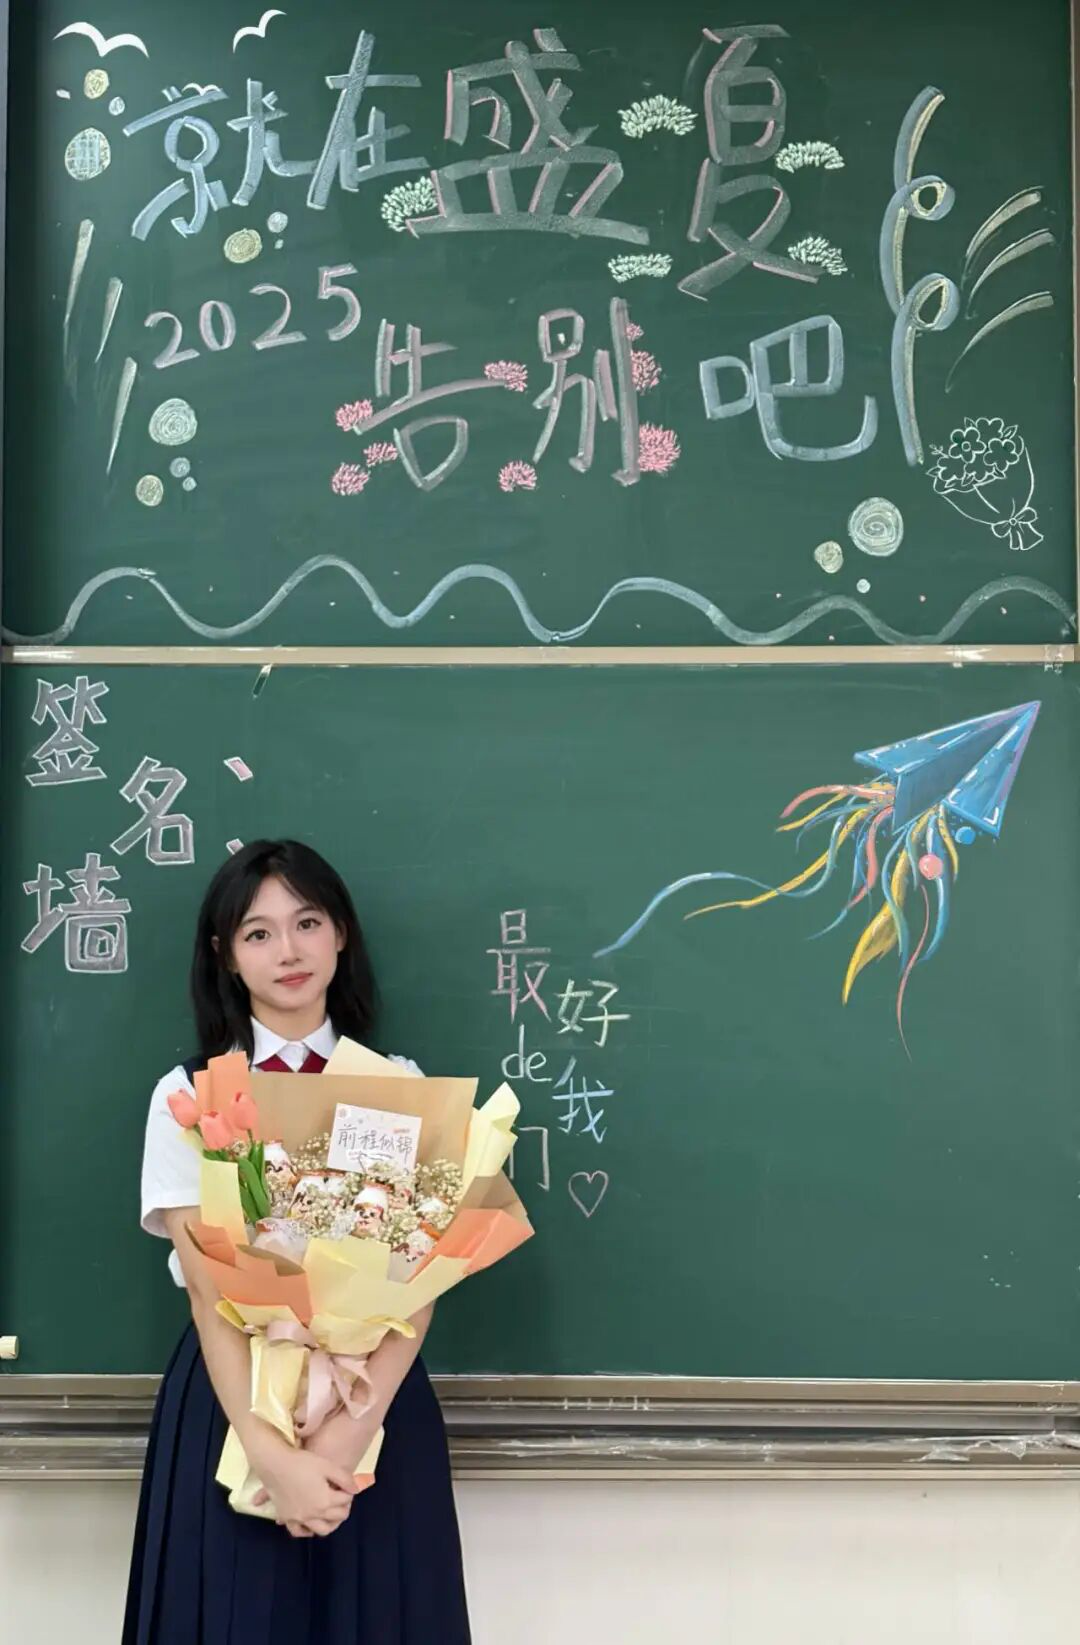 就在盛夏
2025
告别吧
签名墙:
最好de我们
前程似锦